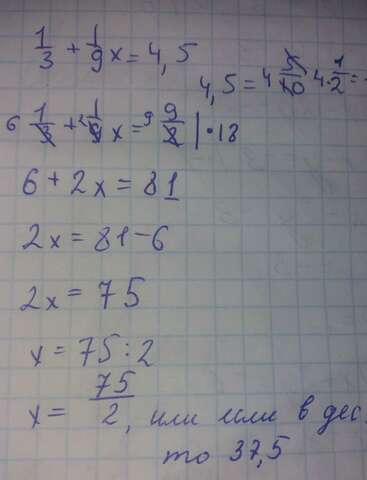 1/3 + 1/9 x = 4,5
4,5 = 4 5/10 4·1/2 =
6 1/3 + 2 1/9 x = 9 9/2 | ·18
6 + 2x = 81
2x = 81 - 6
2x = 75
x = 75 : 2
x = 75/2, или если в дес.
то 37,5